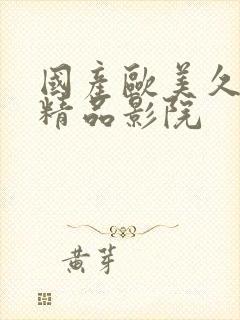 國產歐美久
精品影院
黄芽